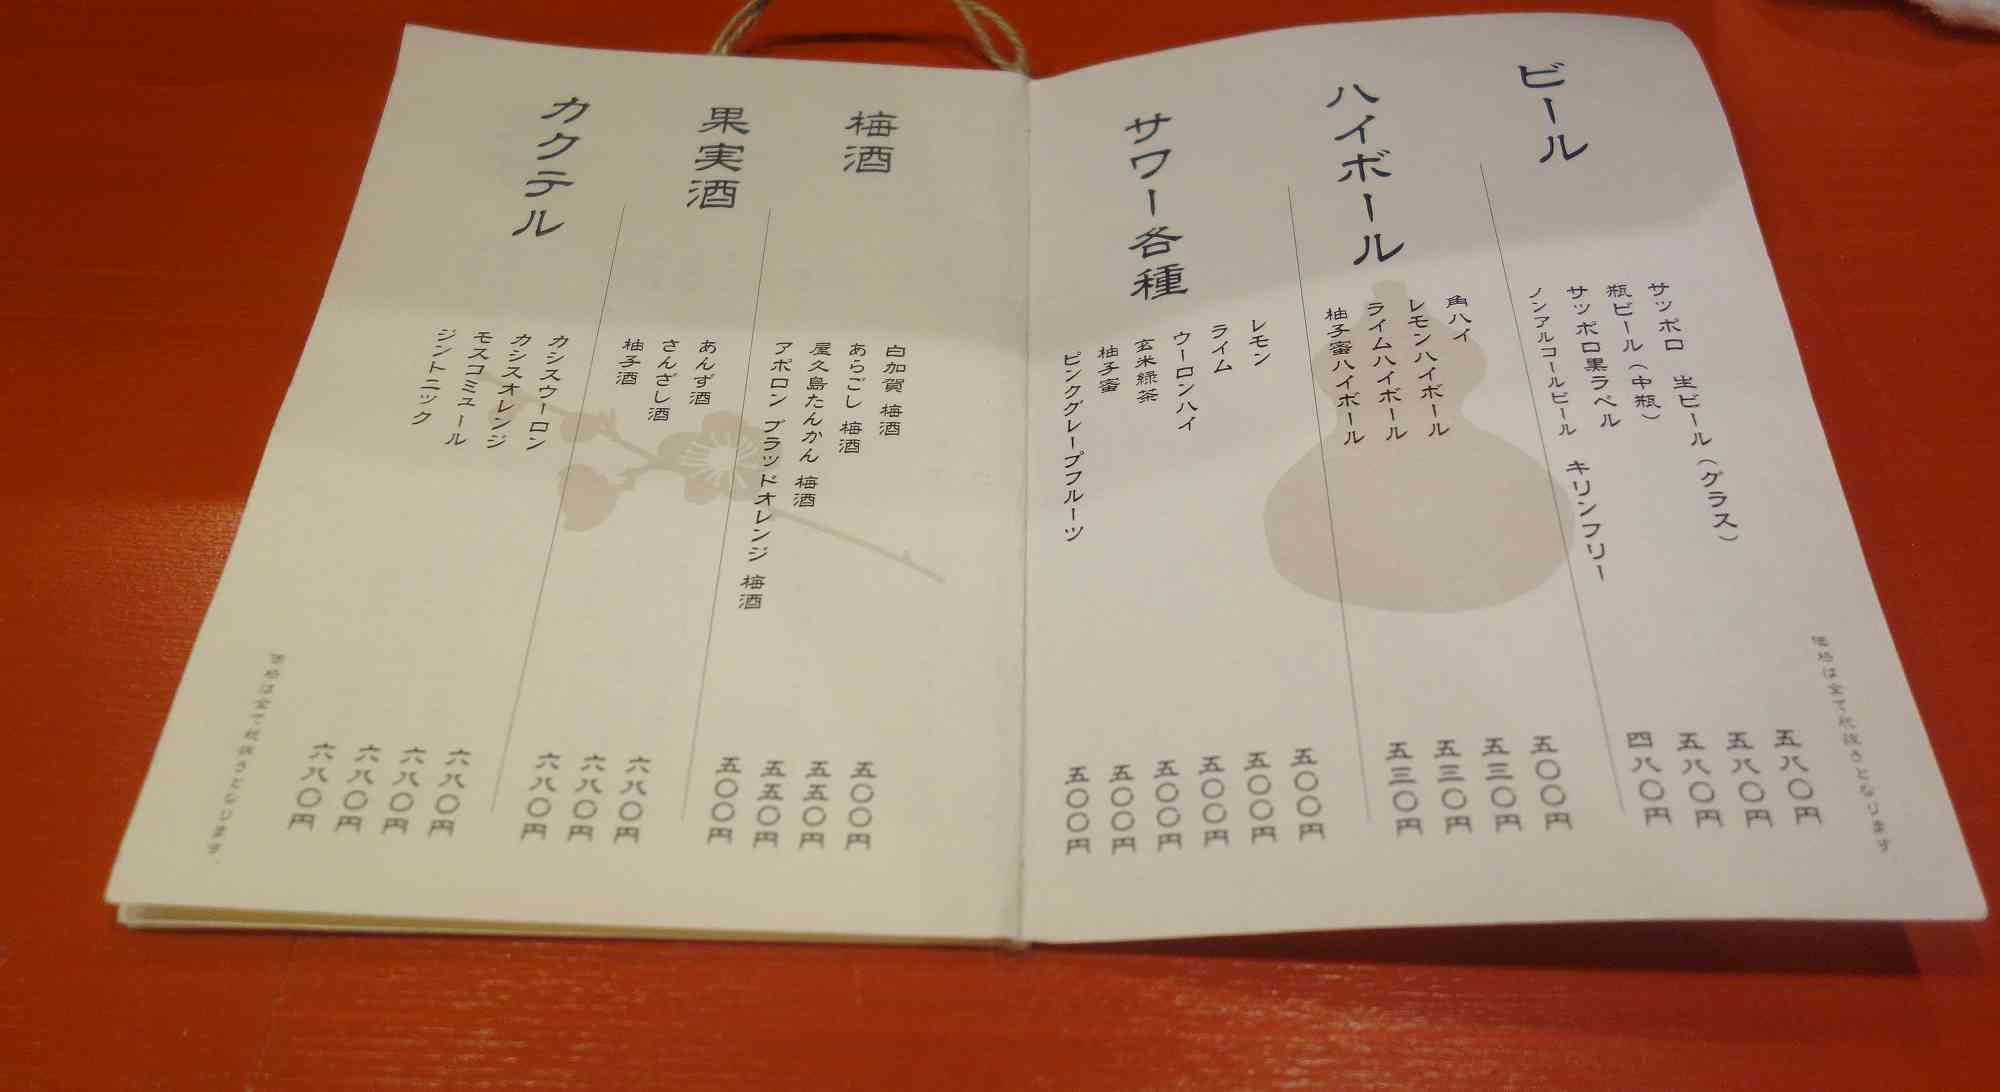 ビール
サッポロ 生ビール(グラス) 五八〇円
瓶ビール(中瓶) 五八〇円
サッポロ黒ラベル 五八〇円
ノンアルコールビール キリンフリー 四八〇円
ハイボール
角ハイ 五〇〇円
レモンハイボール 五三〇円
ライムハイボール 五三〇円
柚子蜜ハイボール 五三〇円
サワー各種
レモン 五〇〇円
ライム 五〇〇円
ウーロンハイ 五〇〇円
玄米緑茶 五〇〇円
柚子蜜 五〇〇円
ピンクグレープフルーツ 五〇〇円
価格は全て税抜きとなります。
梅酒
白加賀 梅酒 五〇〇円
あらごし 梅酒 五五〇円
屋久島たんかん 梅酒 五五〇円
アポロン ブラッドオレンジ 梅酒 五〇〇円
果実酒
あんず酒 六八〇円
さんざし酒 六八〇円
柚子酒 六八〇円
カクテル
カシスウーロン 六八〇円
カシスオレンジ 六八〇円
モスコミュール 六八〇円
ジントニック 六八〇円
価格は全て税抜きとなります。